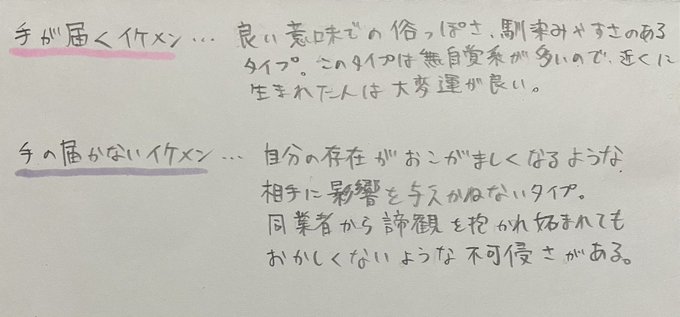 手が届くイケメン… 良い意味での俗っぽさ、馴染みやすさのある
タイプ。このタイプは無自覚系が多いので、近くに
生まれた人は大変運が良い。
手の届かないイケメン… 自分の存在がおこがましくなるような
相手に影響を与えかねないタイプ。
同業者から諦観を抱かれ妬まれても
おかしくないような不可侵さがある。